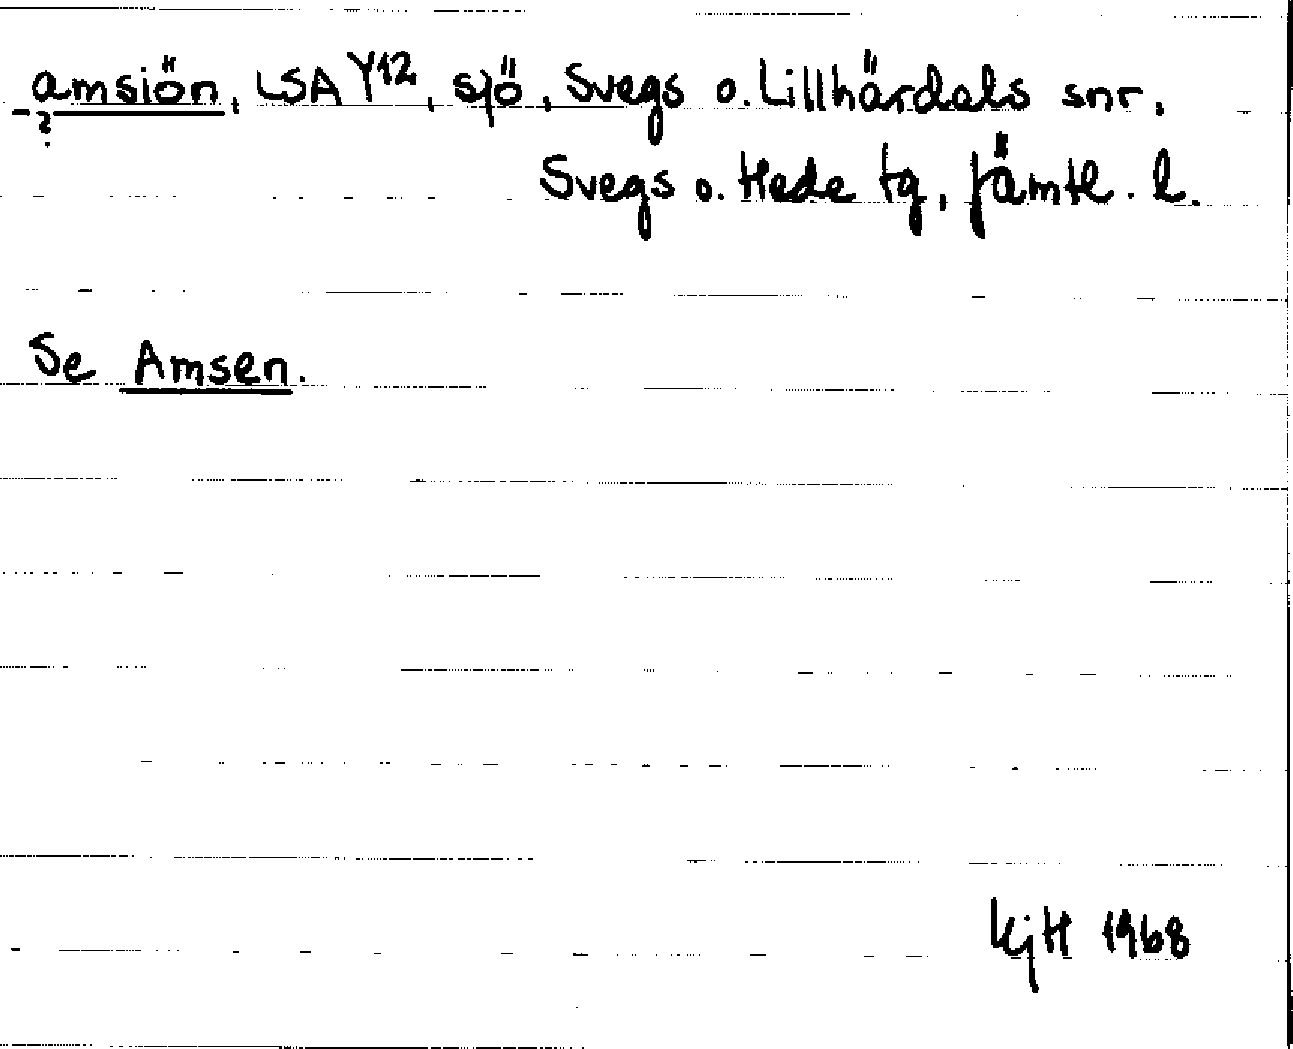 amsiön, LSA Y12, sjö, Svegs o. Lillhärdals snr,
?
Svegs o. Hede tg, Jämtl. l.
Se Amsen.
KjH 1968